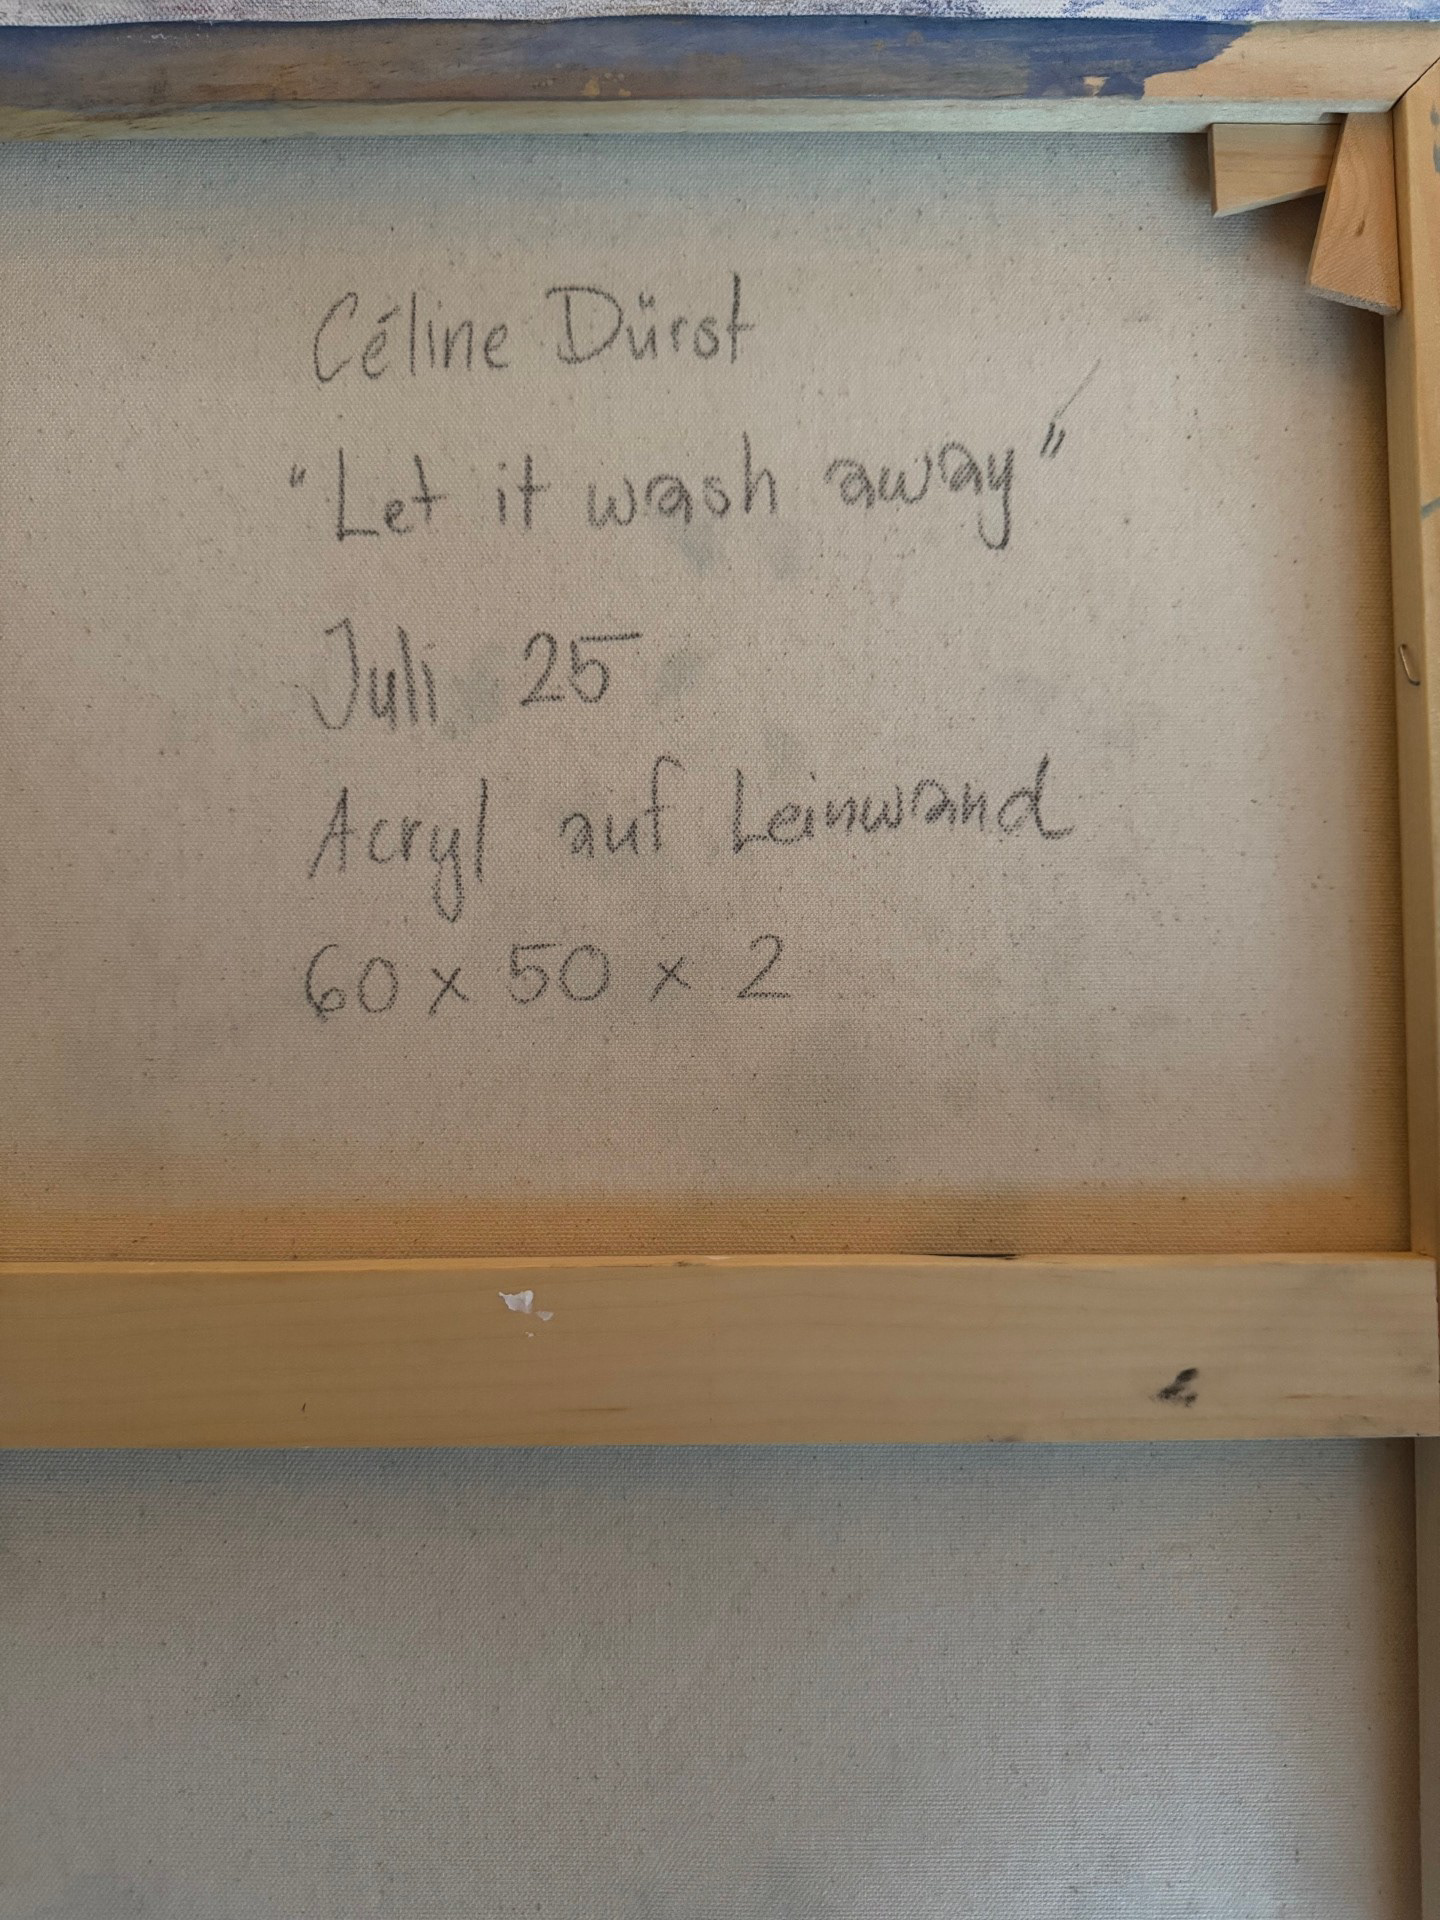 Céline Dürst
"Let it wash away"
Juli 25
Acryl auf Leinwand
60 x 50 x 2